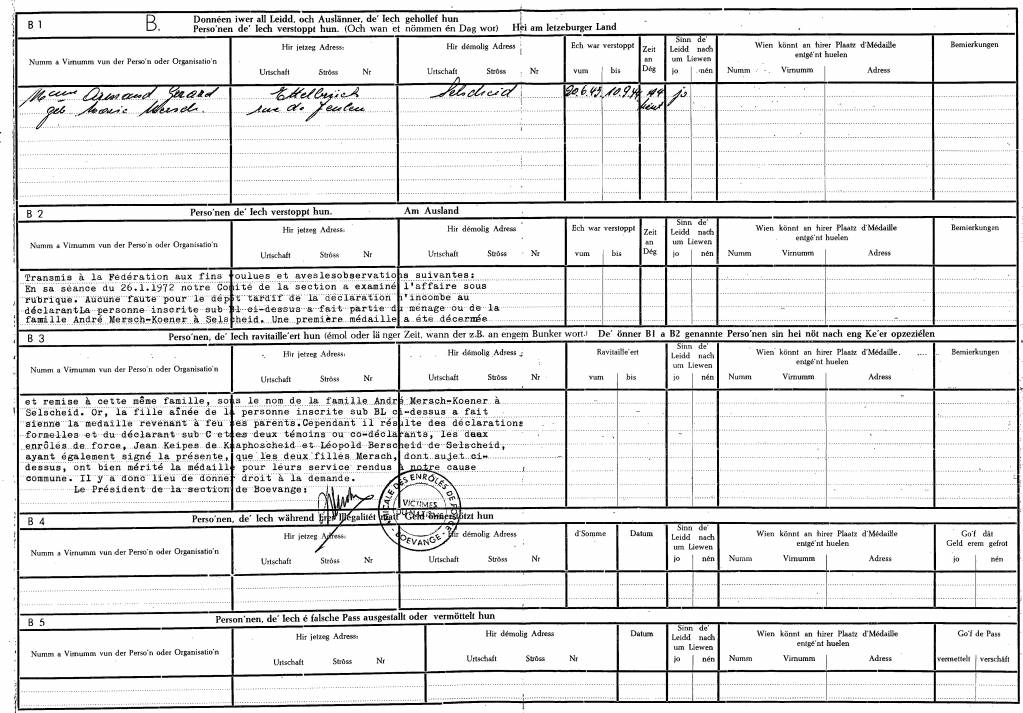 B 1
B.
Donnéen iwer all Leidd, och Auslänner, de' Iech gehollef hun
Perso'nen de' Iech verstoppt hun. (Och wan et nömmen én Dag wor) Hei am letzeburger Land
Numm a Virnumm vun der Perso'n oder Organisatio'n
Hir jetzeg Adress:
Urtschaft Ströss Nr
Hir démolig Adress
Urtschaft Ströss Nr
Ech war verstoppt
vum bis
Zeit an Dég
Sinn de' Leidd nach um Liewen
jo nén
Wien könnt an hirer Plaatz d'Médaille entgé'nt huelen
Numm Virnumm Adress
Bemierkungen
Mme Armand Gerard Ettelbrück Selscheid 20.6.43 10.9.44 jo
geb. Marie Mersch. rue de
B 2
Perso'nen de' Iech verstoppt hun. Am Ausland
Numm a Virnumm vun der Perso'n oder Organisatio'n
Hir jetzeg Adress:
Urtschaft Ströss Nr
Hir démolig Adress
Urtschaft Ströss Nr
Ech war verstoppt
vum bis
Zeit an Dég
Sinn de' Leidd nach um Liewen
jo nén
Wien könnt an hirer Plaatz d'Médaille entgé'nt huelen
Numm Virnumm Adress
Bemierkungen
Transmis à la Fedération aux fins voulues et aveslesobservations suivantes:
En sa séance du 26.1.1972 notre Comité de la section a examiné l'affaire sous
rubrique. Aucune faute pour le dépôt tardif de la déclaration n'incombe au
déclarantLa personne inscrite sub Bl ci-dessus a fait partie du ménage ou de la
famille André Mersch-Koener à Selscheid. Une première médaille a éte décernée
B 3
Perso'nen, de' Iech ravitaille'ert hun (émol oder lä nger Zeit, wann der z.B. an engem Bunker wort.) De' önner B1 a B2 genannte Perso'nen sin hei nöt nach eng Ke'er opzeziélen
Numm a Virnumm vun der Perso'n oder Organisatio'n
Hir jetzeg Adress:
Urtschaft Ströss Nr
Hir démolig Adress
Urtschaft Ströss Nr
Ravitaille'ert
vum bis
Sinn de' Leidd nach um Liewen
jo nén
Wien könnt an hirer Plaatz d'Médaille entgé'nt huelen
Numm Virnumm Adress
Bemierkungen
et remise à cette même famille, sous le nom de la famille André Mersch-Koener à
Selscheid. Or, la fille aînée de la personne inscrite sub BL ci-dessus a fait
sienne la medaille revenant à feu ses parents.Cependant il résulte des déclarations
formelles et du déclarant sub C et es deux témoins ou co-déclarants, les deux
enrôlés de force, Jean Keipes de Knaphoscheid et Léopold Berscheid de Selscheid,
ayant également signé la présente, que les deux filles Mersch, dont sujet ci-
dessus, ont bien mérité la médaille pour leurs service rendus à notre cause
commune. Il y a donc lieu de donner droit à la demande.
Le Président de la section de Boevange:
AMICALE DES ENRÔLÉS DE FORCE
VICTIMES
DU NAZISME
- BOEVANGE -
B 4
Perso'nen, de' Iech während Erer Illegalitét mat Geld önnerstötzt hun
Numm a Virnumm vun der Perso'n oder Organisatio'n
Hir jetzeg Adress:
Urtschaft Ströss Nr
Hir démolig Adress
Urtschaft Ströss Nr
d'Somme
Datum
Sinn de' Leidd nach um Liewen
jo nén
Wien könnt an hirer Plaatz d'Médaille entgé'nt huelen
Numm Virnumm Adress
Go'f dât Geld erem gefrot
jo nén
B 5
Person'nen, de' Iech é falsche Pass ausgestallt oder vermöttelt hun
Numm a Virnumm vun der Perso'n oder Organisatio'n
Hir jetzeg Adress:
Urtschaft Ströss Nr
Hir démolig Adress
Urtschaft Ströss Nr
Datum
Sinn de' Leidd nach um Liewen
jo nén
Wien könnt an hirer Plaatz d'Médaille entgé'nt huelen
Numm Virnumm Adress
Go'f de Pass
vermettelt verschâft